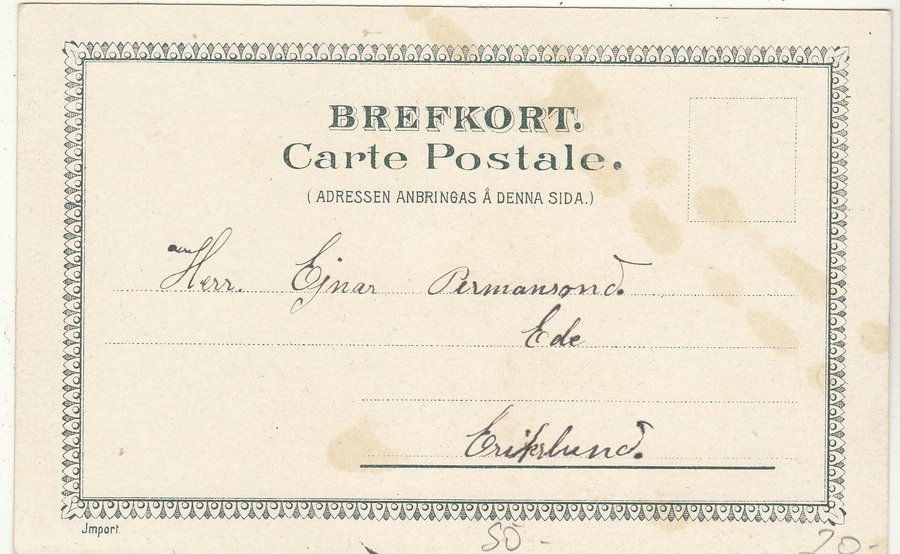 BREFKORT.
Carte Postale.
(ADRESSEN ANBRINGAS Å DENNA SIDA.)
Herr. Ejnar Permansond.
Ede
Erikslund.
Import
50 - 20 -